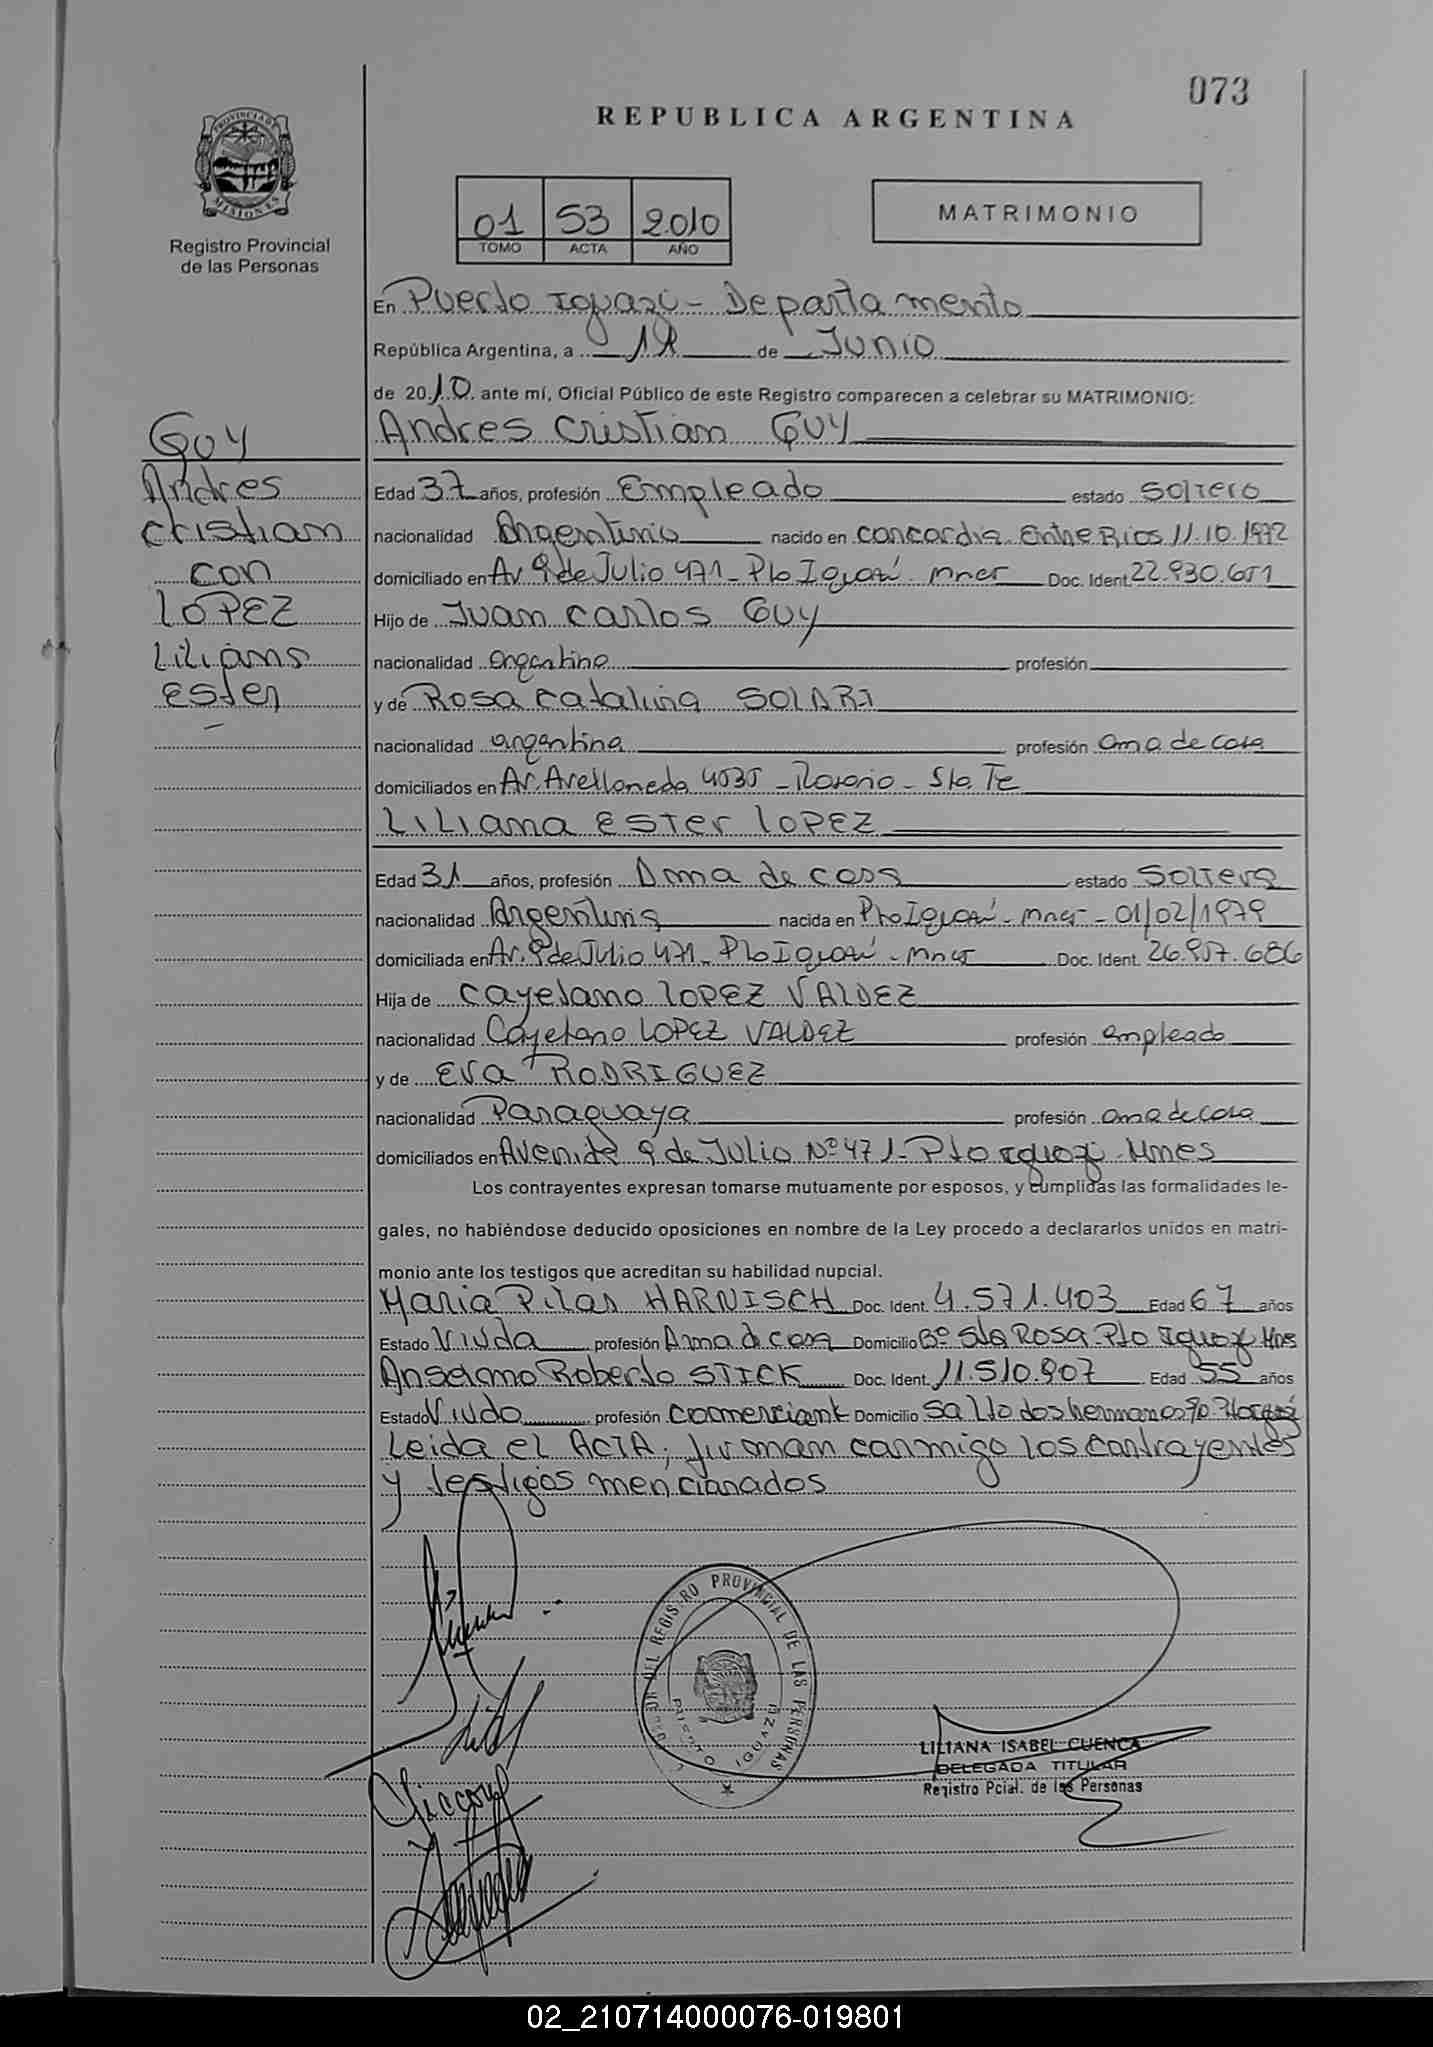 073
REPUBLICA ARGENTINA
PROVINCIA DE MISIONES
Registro Provincial
de las Personas
01 53 2010
TOMO ACTA AÑO
MATRIMONIO
En Puerto Iguazú - Departamento
República Argentina, a de Junio
de 2010 ante mí, Oficial Público de este Registro comparecen a celebrar su MATRIMONIO:
Andres Cristian GUY
GUY
Andres
Cristian
con
LOPEZ
Liliana
Ester
Edad 37 años, profesión Empleado estado Soltero
nacionalidad Argentino nacido en Concordia Entre Rios 11.10.1972
domiciliado en Av. 9 de Julio 471 - Pto Iguazú - Mnes Doc. Ident. 22.930.651
Hijo de Juan Carlos GUY
nacionalidad argentino profesión
y de Rosa Catalina SOLARI
nacionalidad argentina profesión ama de casa
domiciliados en Av. Avellaneda 4535 - Rosario - Sta. Fe
LILIANA ESTER LOPEZ
Edad 31 años, profesión Ama de casa estado Soltera
nacionalidad Argentina nacida en Pto Iguazú - Mnes - 01/02/1979
domiciliada en Av. 9 de Julio 471 - Pto Iguazú - Mnes Doc. Ident. 26.957.686
Hija de Cayetano LOPEZ VALDEZ
nacionalidad Cayetano LOPEZ VALDEZ profesión empleado
y de EVA RODRIGUEZ
nacionalidad Paraguaya profesión ama de casa
domiciliados en Avenida 9 de Julio Nº 471 - Pto Iguazú - Mnes
Los contrayentes expresan tomarse mutuamente por esposos, y cumplidas las formalidades le-
gales, no habiéndose deducido oposiciones en nombre de la Ley procedo a declararlos unidos en matri-
monio ante los testigos que acreditan su habilidad nupcial.
Maria Pilar HARNISCH Doc. Ident. 4.571.403 Edad 67 años
Estado Viuda profesión Ama de casa Domicilio Bº Sta Rosa - Pto Iguazú Mnes
Anselmo Roberto STICK Doc. Ident. 11.510.907 Edad 55 años
Estado Viudo profesión Comerciant Domicilio Salto dos hermanos
Leida el ACTA, firman conmigo los contrayentes
y testigos mencionados
DEL REGISTRO PROVINCIAL DE LAS PERSONAS
PUERTO IGUAZU
LILIANA ISABEL CUENCA
DELEGADA TITULAR
Registro Pcial. de las Personas
02_210714000076-019801